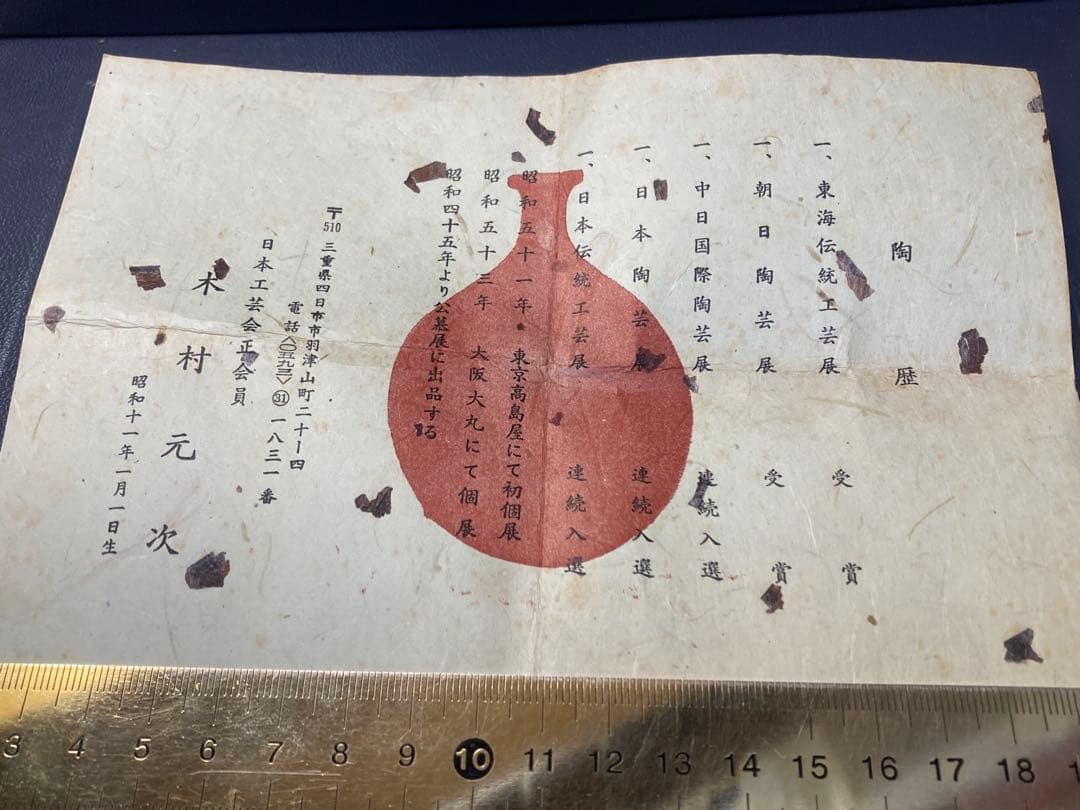 陶歴
一、東海伝統工芸展 受賞
一、朝日陶芸展 受賞
一、中日国際陶芸展 連続入選
一、日本陶芸展 連続入選
一、日本伝統工芸展 連続入選
昭和五十一年 東京高島屋にて初個展
昭和五十三年 大阪大丸にて個展
昭和四十五年より公募展に出品する
〒510 三重県四日市市羽津山町二十一四
電話〈〇五九三〉㉛一八三一番
日本工芸会正会員
木村元次
昭和十一年一月一日生
3 4 5 6 7 8 9 10 11 12 13 14 15 16 17 18